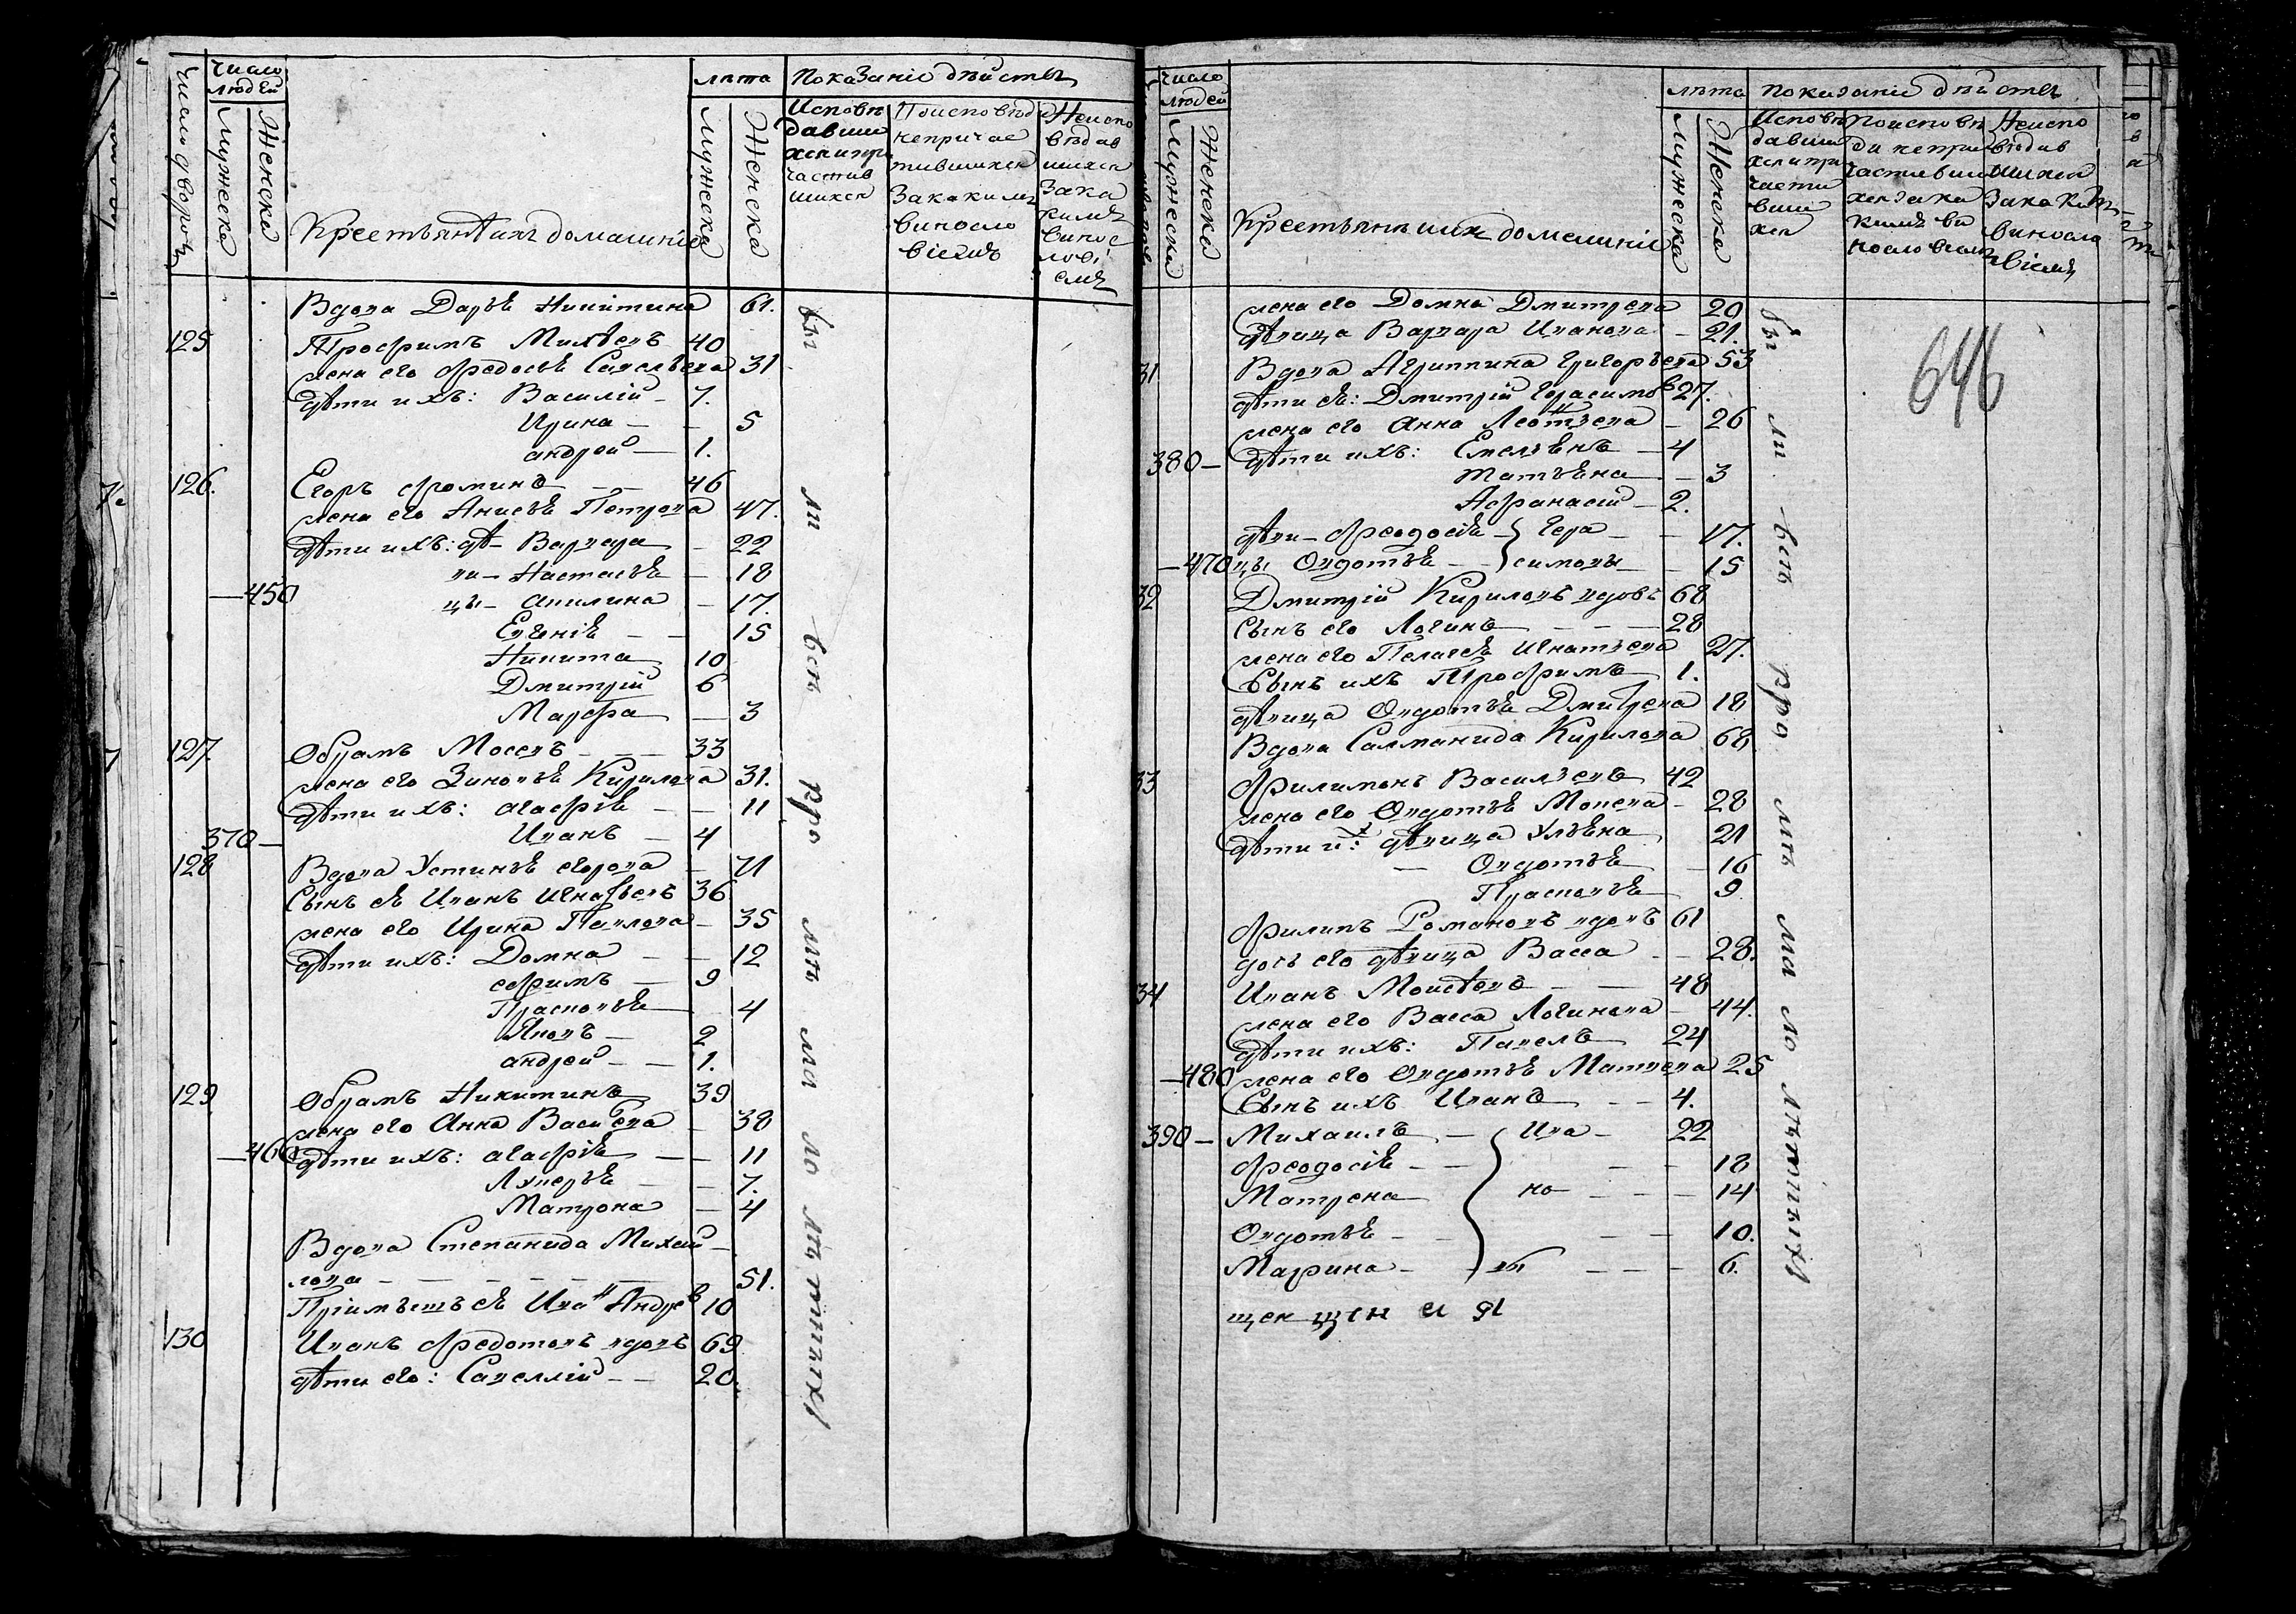 Число дворовъ
Число людей
Мужеска
Женска
Крестьяня ихъ домашніе
лѣта
Мужеска
Женска
Показаніе дѣйствъ
Исповѣдавшихся и причастившихся
По исповѣди непричастившихся
За какимъ винословіемъ
Неисповѣдавшихся
За какимъ винословіемъ
Вдова Дарья Никитина 61.
125 Трофимъ Михѣевъ 40
жена его Ѳедосья Савельева 31
дѣти ихъ: Василій – 7.
Ирина – – 5
андрей – 1.
126. Егоръ Ѳоминъ – – 46
жена его Анисья Петрова 47.
дѣти ихъ: дѣ– Варвара – 22
ви– Настасья – 18
– 450 цы– Акилина – 17.
Евгенія – – 15
Никита 10
Дмитрій 6
Марфа – 3
127. Обрамъ Мосевъ – – – 33
жена его Зиновья Кирилова 31.
дѣти ихъ: агафія – – 11
370 – Иванъ – 4
128 Вдова Устинья егорова – 71
Сынъ ея Иванъ Игнатьевъ 36
жена его Ирина Павлова – 35
дѣти ихъ: Домна – – 12
ефимъ – 9
Прасковья – 4
Яковъ – 2
андрей – – 1.
129 Обрамъ Никитинъ 39
жена его Анна Васильева – 38
– 460 дѣти ихъ: агафія – – 11
Лукерья – – 7.
Матрона – 4
Вдова Степанида Михай–
лова – – – – – – 51.
Пріимышъ ея Иванъ Андреевъ 10
130 Иванъ Ѳедотовъ вдовъ 69
дѣти его: Савеллій – – 20.
бы ли всѣ кро мѣ ма ло лѣ тныхъ
Число людей
Мужеска
Женска
Крестьяня ихъ домашніе
лѣта
Мужеска
Женска
Показаніе дѣйствъ
Исповѣдавшихся и причастившихся
По исповѣди непричастившихся за какимъ винословіемъ
Неисповѣдавшихся
За какимъ винословіемъ
646
жена его Домна Дмитрева 20
дѣвица Варвара Иванова – 21.
31 Вдова Агриппина Григорьева 53
дѣти ея: Дмитрій Герасимовъ 27.
жена его Анна Леонтьева – 26
380 – дѣти ихъ: Емельянъ – 4
Татьяна – 3
Афанасій – 2.
дѣви– Ѳеодосія – Гера – – 17.
– 470 цы Овдотья – – симовы – 15
32 Дмитрій Кириловъ вдовъ 68
Сынъ его Логинъ – – – 28
жена его Пелагея Игнатьева 27.
Сынъ ихъ Трофимъ 1.
дѣвица Овдотья Дмитрева 18
Вдова Салманида Кирилова 68
33 Филимонъ Васильевъ 42
жена его Овдотья Мокева – 28
дѣти ихъ: дѣвица Ульяна 21
– Овдотья – 16
Прасковья – 9
Филипъ Романовъ вдовъ 61
дочь его дѣвица Васса – – 28.
34 Иванъ Моисѣевъ – – 48
жена его Васса Логинова – 44.
дѣти ихъ: Павелъ 24
– 480 жена его Овдотья Матвева 25
Сынъ ихъ Иванъ – – 4.
390 – Михаилъ – Ива – 22
Ѳеодосія – – – – 18
Матрена но – – – 14
Овдотья – – – – 10.
Марина – – вы – – – 6.
бы ли всѣ кро мѣ ма ло лѣтныхъ